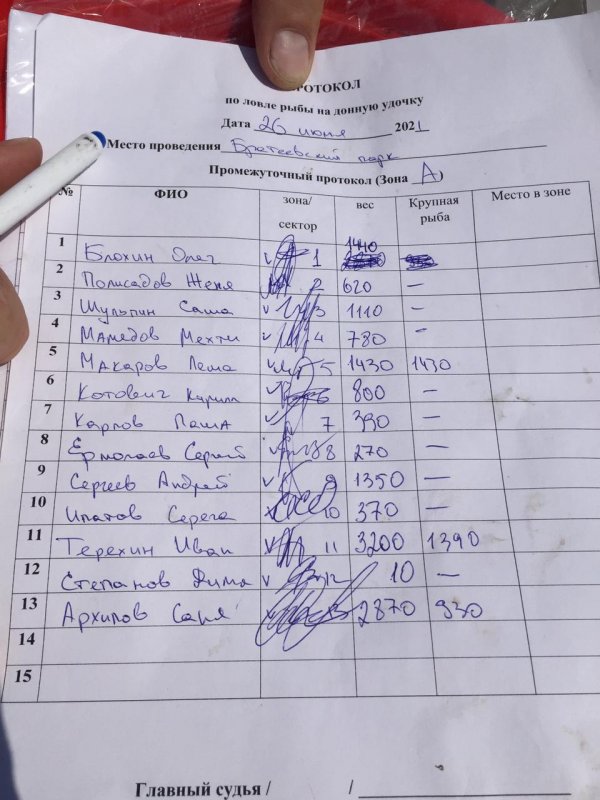 ПРОТОКОЛ
по ловле рыбы на донную удочку
Дата 26 июня 2021
Место проведения Братеевский парк
Промежуточный протокол (Зона А)
№ ФИО зона/сектор вес Крупная рыба Место в зоне
1 Блохин Олег v 1 1440
2 Полисадов Женя 2 620 —
3 Шульпин Саша v 3 1110 —
4 Мамедов Мехти v 4 780 —
5 Макаров Лёша v 5 1430 1430
6 Котович Кирилл v 6 800 —
7 Карпов Паша v 7 390 —
8 Ермолаев Сергей v 8 270 —
9 Сергеев Андрей v 9 1350 —
10 Ипатов Серега 10 370 —
11 Терехин Иван v 11 3200 1390
12 Степанов Дима v 12 10 —
13 Архипов Саня 2870 930
14
15
Главный судья / /